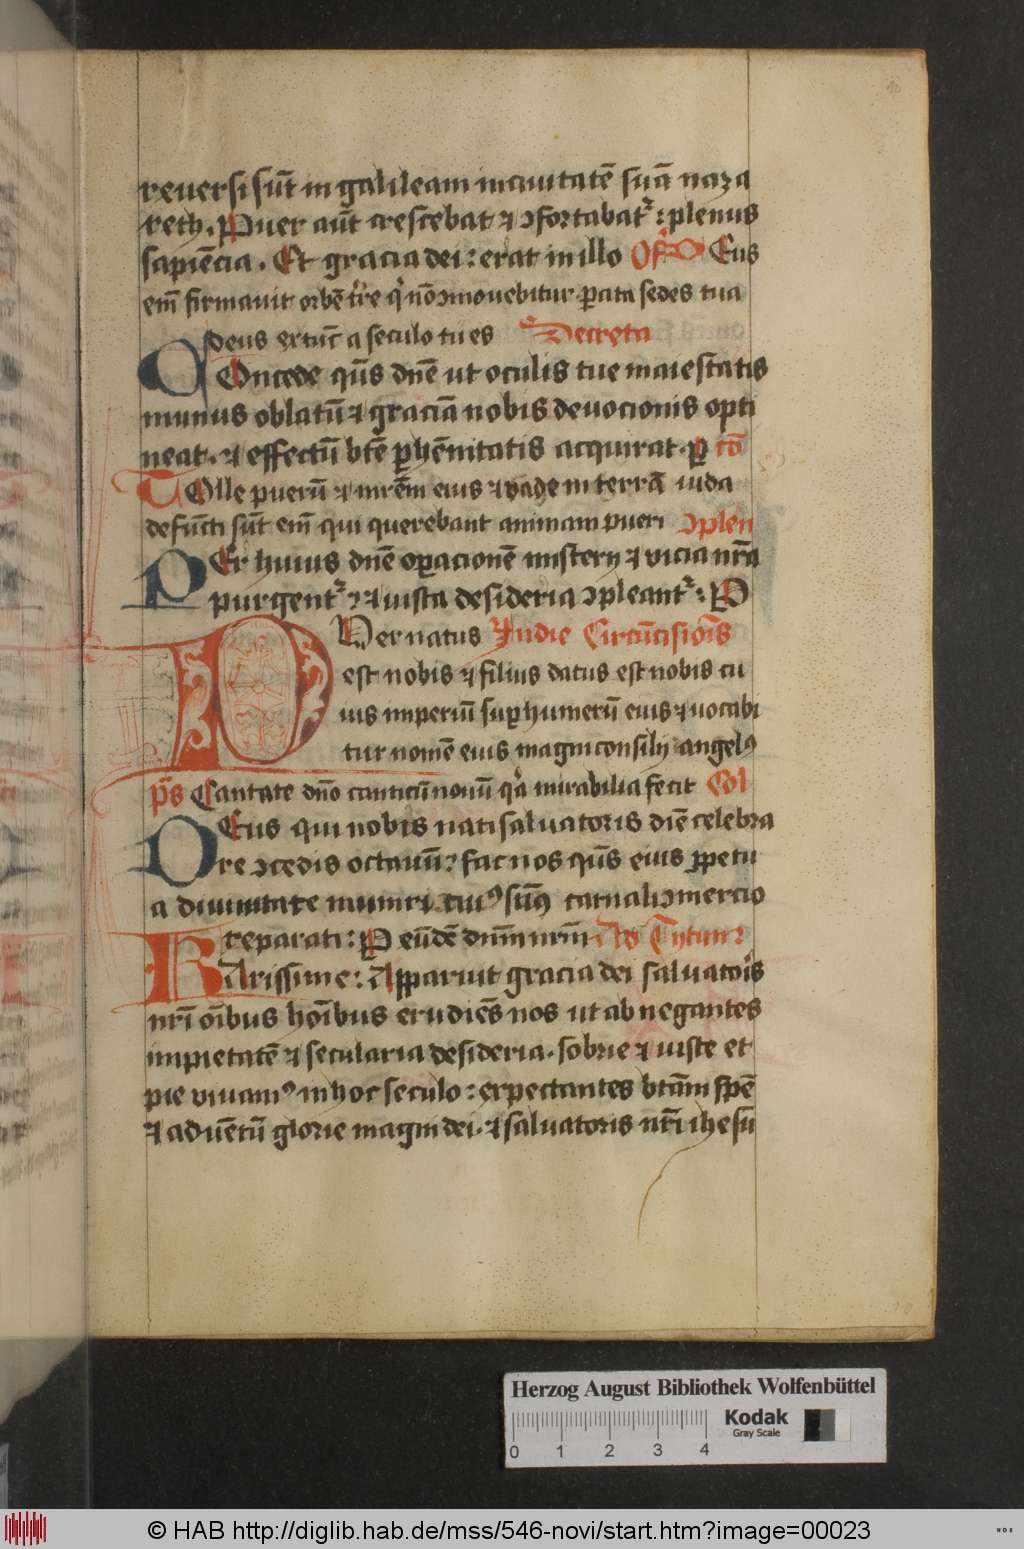 10
reuersi sūt in galileam in ciuitatē suā naza
reth. Puer aūt crescebat ⁊ ꝯfortabat᷑ : plenus
sapiēcia . Et gracia dei : erat in illo Off Deus
em̄ firmauit orbē t͛re q̇ nō ꝯmouebitur ꝑata sedes tua
deus ex tūc a seculo tu es Secreta
Concede qs̄ dn̄e ut oculis tue maiestatis
munus oblatū ⁊ graciā nobis deuocionis opti
neat . ⁊ effectū btē ꝑhēnitatis acquirat . ꝑ cō
Tolle puerū ⁊ mr̄em eius ⁊ vade in terrā iuda
defūcti sūt em̄ qui querebant animam pueri ꝯplen
Per huius dn̄e oꝑacionē mistery ⁊ vicia nr̄a
purgent᷑ : ⁊ iusta desideria ꝯpleant᷑ : P
Puer natus In die Circūcisiōis
est nobis ⁊ filius datus est nobis cu
ius imperiū suꝑ humerū eius ⁊ uocabi
tur nomē eius magni consily angelꝰ
p̄s Cantate dn̄o canticū nouū qꝛ mirabilia fecit Col
Deus qui nobis nati saluatoris diē celebra
re ꝯcedis octauū : fac nos qs̄ eius ꝑpetu
a diuinitate muniri cuiꝰ sum̄ꝰ carnali ꝯmercio
reparati : P eūdē dn̄m nr̄m Ad Tytum :
Karissime : Apparuit gracia dei saluatoīs
nr̄i oībus hoībus erudiēs nos ut abnegantes
impietatē ⁊ secularia desideria . sobrie ⁊ iuste et
pie viuamꝰ in hoc seculo : expectantes btām spē
⁊ aduētū glorie magni dei . ⁊ saluatoris nr̄i ihesu
Herzog August Bibliothek Wolfenbüttel
Kodak
Gray Scale
0 1 2 3 4
© HAB http://diglib.hab.de/mss/546-novi/start.htm?image=00023